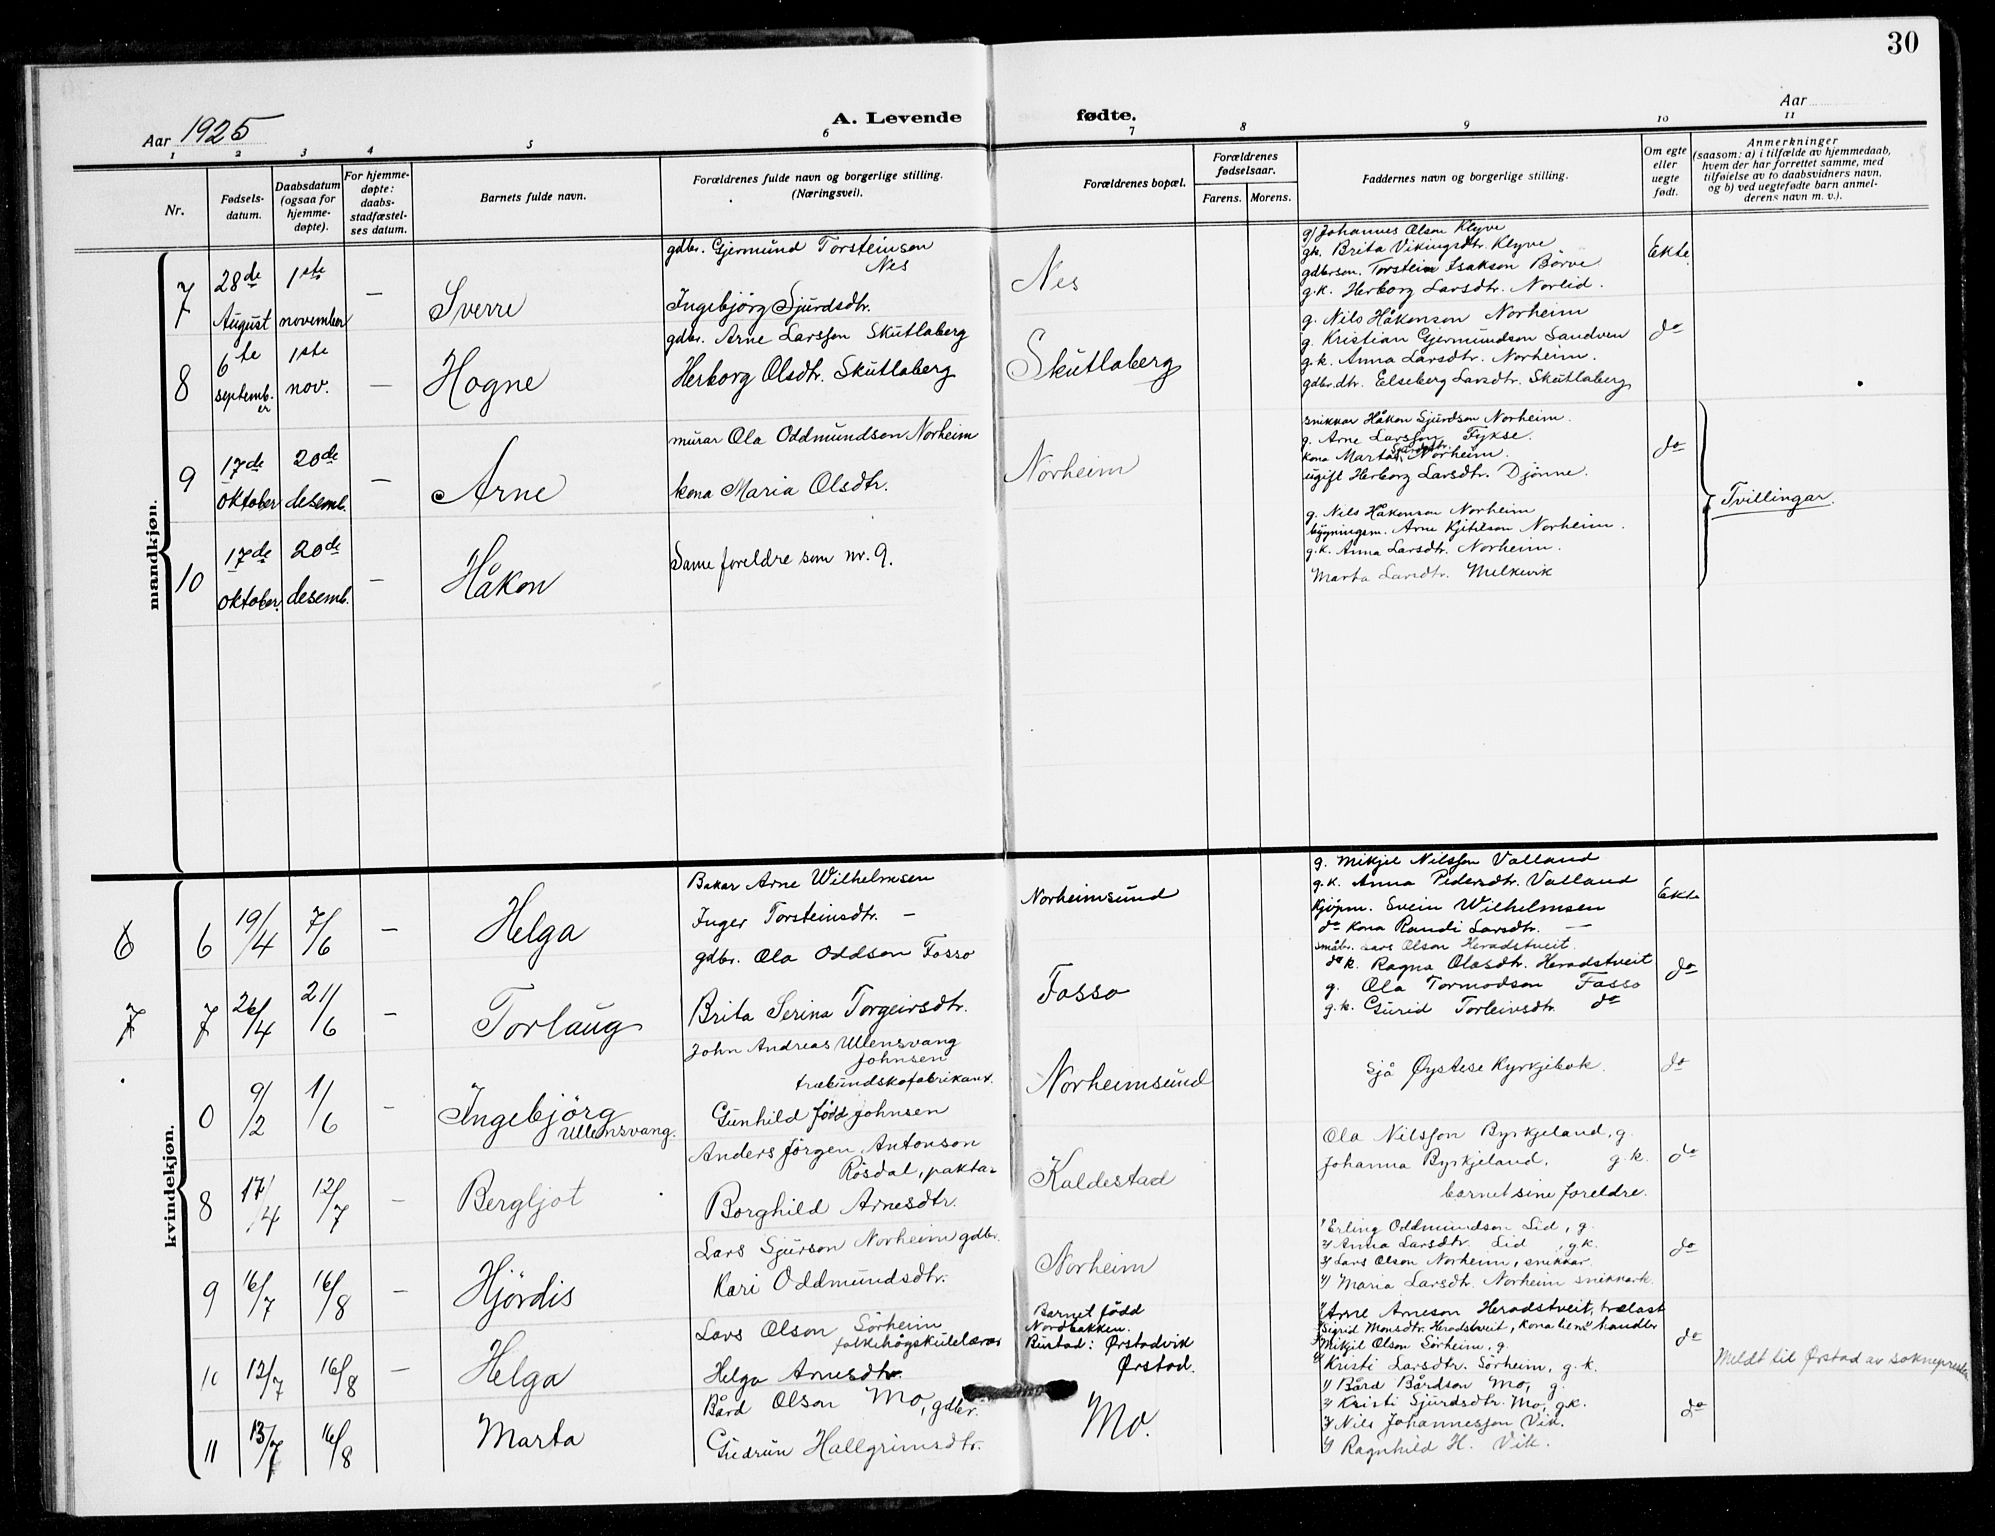 30
Aar 1925
A. Levende fødte.
Aar
1 2 3 4 5 6 7 8 9 10 11
Nr.
Fødsels-
datum.
Daabsdatum
(ogsaa for
hjemme-
døpte).
For hjemme-
døpte:
daabs-
stadfæstel-
ses datum.
Barnets fulde navn.
Forældrenes fulde navn og borgerlige stilling.
(Næringsvei).
Forældrenes bopæl.
Forældrenes
fødselsaar.
Farens. Morens.
Faddernes navn og borgerlige stilling.
Om egte
eller
uegte
født.
Anmerkninger
(saasom: a) i tilfælde av hjemmedaab,
hvem der har forrettet samme, med
tilføielse av to daabsvidners navn,
og b) ved uegtefødte barn anmel-
derens navn m. v.).
mandkjøn.
7
28de
August
1ste
november
—
Sverre
gdbr. Gjermund Torsteinson
Nes
Ingebjörg Sjurdsdtr.
Nes
g. Johannes Olson Klyve
gk. Brita Vikingsdtr. Klyve
gdbrson. Torstein Isakson Börve
g.k. Herborg Larsdtr. Norlid.
Ekte
8
6te
septemb.
er
1ste
nov.
—
Hogne
gdbr. Arne Larsson Skutlaberg
Herborg Olsdtr. Skutlaberg
Skutlaberg
g. Nils Håkonson Norheim
g. Kristian Gjermundson Sandven
g.k. Anna Larsdtr. Norheim.
gdbr.dtr. Eelseberg Larsdtr. Skutlaberg
do
9
17de
oktober
20de
desemb.
—
Arne
murar Ola Oddmundson Norheim
kona Maria Olsdtr.
Norheim
snikkar Håkon Sjurdson Norheim.
g. Arne Larsson Fykse.
kona Marta Norheim.
ugift Herborg Larsdtr. Djönne.
do
Tvillingar.
10
17de
oktober.
20de
desemb.
—
Håkon
Same foreldre som nr. 9.
g. Nils Håkonson Norheim
bygningsm. Arne Kjetilson Norheim.
g.k. Anna Larsdtr. Norheim.
Marta Larsdtr. Melkevik
kvindekjøn.
6 6
19/4
7/6
—
Helga
Bakar Arne Wilhelmsen
Inger Torsteinsdtr. —
Norheimsund
g. Mikjel Nilsson Valland
g.k. Anna Pedersdtr. Valland
Kjöpm. Svein Wilhelmsen
do Kona Randi Larsdtr. —
Ekte
7 7
26/4
21/6
—
Torlaug
gdbr. Ola Oddson Fosso
Brita Serina Torgeirsdtr.
Fosso
småbr. Lars Olson Heradstveit.
do k. Ragna Olasdtr. Heradstveit
g. Ola Tormodson Fosso
g.k. Gurid Torleivsdtr. do
do
0
9/2
1/6
—
Ingebjörg
Ullensvang.
John Andreas Ullensvang
Johnsen
træbundskofabrikant.
Gunhild född Johnsen
Norheimsund
Sjå Øystese Kyrkjebok.
do
8
17/4
12/7
—
Bergljot
Anders Jörgen Antonson
Rösdal, paktar
Borghild Arnesdtr.
Kaldestad
Ola Nilsson Byrkjeland, g.
Johanna Byrkjeland, g.k.
barnet sine foreldre.
do
9
16/7
16/8
—
Hjördis
Lars Sjurson Norheim gdbr.
Kari Oddmundsdtr.
Norheim
1/ Erling Oddmundson Lid, g.
2/ Anna Larsdtr. Lid, g.k.
3/ Lars Olson Norheim, snikkar
4/ Maria Larsdtr. Norheim snikkark.
do
10
12/7
16/8
—
Helga
Lars Olson Sörheim
folkehögskulelærar
Helga Arnesdtr.
Barnet född
Nordbakken.
Bustad: Ørstadvik
Ørstad.
1/ Arne Arneson Heradstveit, trælast
2/ Sigrid Monsdtr. Heradstveit, kona hens handler
3/ Mikjel Olson Sörheim, g.
4/ Kristi Larsdtr. Sörheim, g.k.
do
Meldt til Ørstad av soknepresten
11
13/7
16/8
Marta
Bård Olson Mo, gdbr.
Gudrun Hallgrimsdtr.
Mo.
1/ Bård Bårdson Mo, g.
2/ Kristi Sjurdsdtr. Mo, gk.
3/ Nils Johannesson Vik.
4/ Ragnhild H. Vik.
do